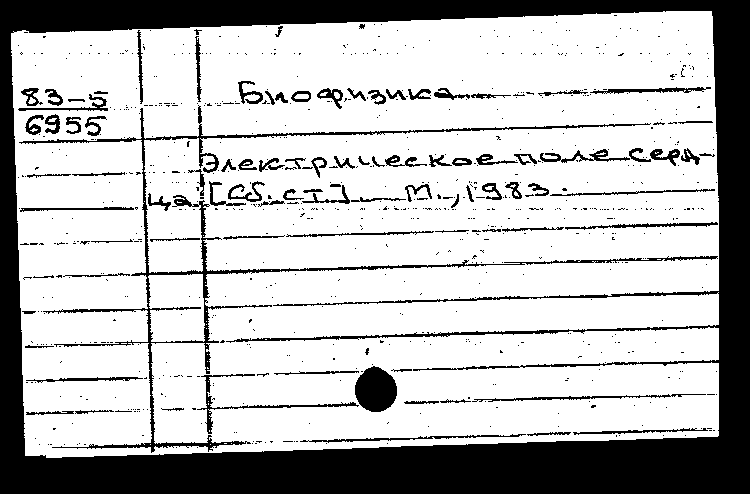 83-5
6955
Биофизика
Электрическое поле серд-
ца [Сб. ст.]. М., 1983.